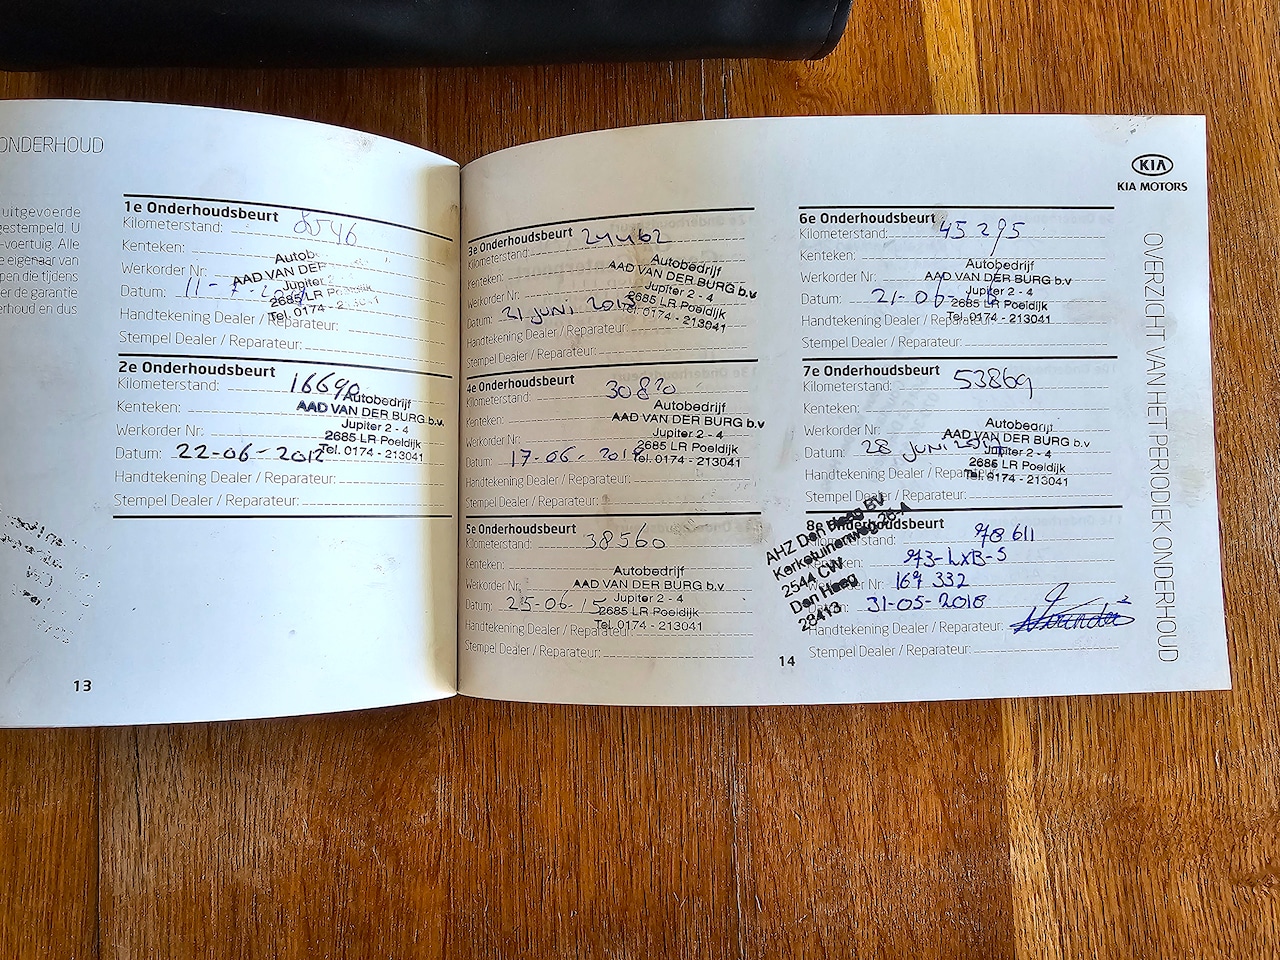 ONDERHOUD
uitgevoerde
gestempeld. U
-voertuig. Alle
e eigenaar van
pen die tijdens
er de garantie
erhoud en dus
1e Onderhoudsbeurt
Kilometerstand: 8546
Kenteken:
Werkorder Nr:
Datum: 11-7-
Handtekening Dealer / Reparateur:
Stempel Dealer / Reparateur:
Autob
AAD VAN DER
Jupiter
2685 LR Poeldijk
Tel. 0174 - 213041
2e Onderhoudsbeurt
Kilometerstand: 16690
Kenteken:
Werkorder Nr:
Datum: 22-06-2012
Handtekening Dealer / Reparateur:
Stempel Dealer / Reparateur:
Autobedrijf
AAD VAN DER BURG b.v.
Jupiter 2 - 4
2685 LR Poeldijk
Tel. 0174 - 213041
13
3e Onderhoudsbeurt
Kilometerstand: 24462
Kenteken:
Werkorder Nr:
Datum: 21 juni 2013
Handtekening Dealer / Reparateur:
Stempel Dealer / Reparateur:
Autobedrijf
AAD VAN DER BURG b.v
Jupiter 2 - 4
2685 LR Poeldijk
Tel. 0174 - 213041
4e Onderhoudsbeurt
Kilometerstand: 30820
Kenteken:
Werkorder Nr:
Datum: 17-06-2014
Handtekening Dealer / Reparateur:
Stempel Dealer / Reparateur:
Autobedrijf
AAD VAN DER BURG b.v
Jupiter 2 - 4
2685 LR Poeldijk
Tel. 0174 - 213041
5e Onderhoudsbeurt
Kilometerstand: 38560
Kenteken:
Werkorder Nr:
Datum: 25-06-15
Handtekening Dealer / Reparateur:
Stempel Dealer / Reparateur:
Autobedrijf
AAD VAN DER BURG b.v
Jupiter 2 - 4
2685 LR Poeldijk
Tel. 0174 - 213041
KIA
KIA MOTORS
6e Onderhoudsbeurt
Kilometerstand: 45295
Kenteken:
Werkorder Nr:
Datum: 21-06-
Handtekening Dealer / Reparateur:
Stempel Dealer / Reparateur:
Autobedrijf
AAD VAN DER BURG b.v
Jupiter 2 - 4
2685 LR Poeldijk
Tel. 0174 - 213041
7e Onderhoudsbeurt
Kilometerstand: 53869
Kenteken:
Werkorder Nr:
Datum: 28 juni
Handtekening Dealer / Reparateur:
Stempel Dealer / Reparateur:
Autobedrijf
AAD VAN DER BURG b.v
Jupiter 2 - 4
2685 LR Poeldijk
Tel. 0174 - 213041
8e Onderhoudsbeurt
Kilometerstand: 78 611
Kenteken: 93-LXB-5
Werkorder Nr: 167 332
Datum: 31-05-2018
Handtekening Dealer / Reparateur:
Stempel Dealer / Reparateur:
AHZ Den Haag BV
Kerketuinenweg 26-A
2544 CW
Den Haag
28413
14
OVERZICHT VAN HET PERIODIEK ONDERHOUD